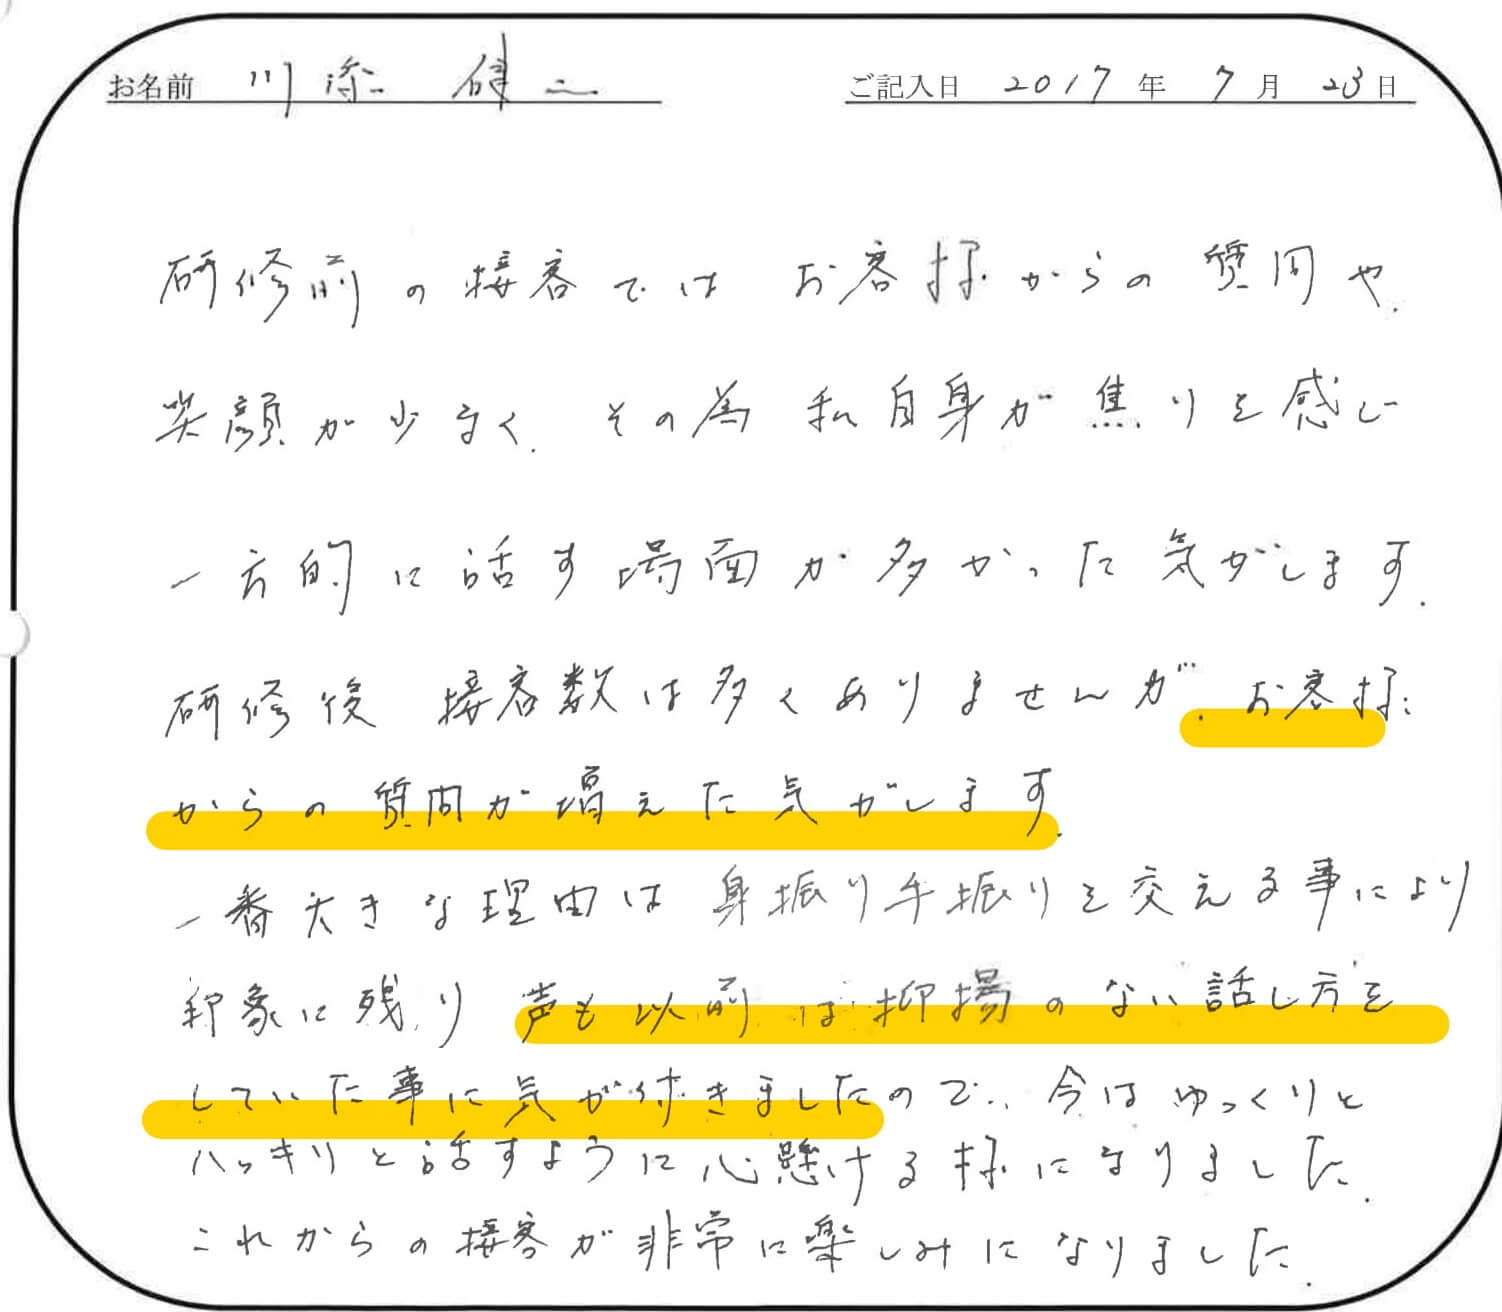 お名前 川添 健二 ご記入日 2017年 7月 23日
研修前の接客では お客様からの質問や
笑顔が少なく、その為 私自身が焦りを感じ
一方的に話す場面が多かった気がします。
研修後 接客数は多くありませんが、お客様
からの質問が増えた気がします。
一番大きな理由は身振り手振りを交える事により
印象に残り 声も以前は抑揚のない話し方を
していた事に気が付きましたので、今はゆっくりと
ハッキリと話すように心懸ける様になりました。
これからの接客が非常に楽しみになりました。